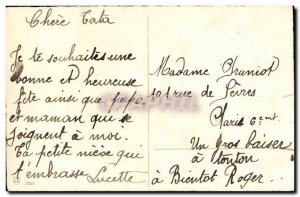 Chère Tata
Je te souhaites une
bonne et heureuse
fête ainsi que papa
et maman qui se
joignent à moi.
Ta petite nièce qui
t'embrasse Lucette
Madame Pruniot
101 rue de Sèvres
Paris 6ème
Un gros baiser
à tonton
à Bientot Roger.